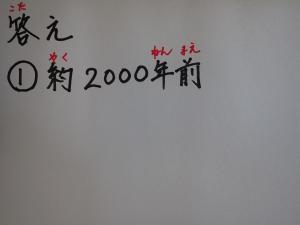 こた
答え
やく ねん まえ
① 約2000年前